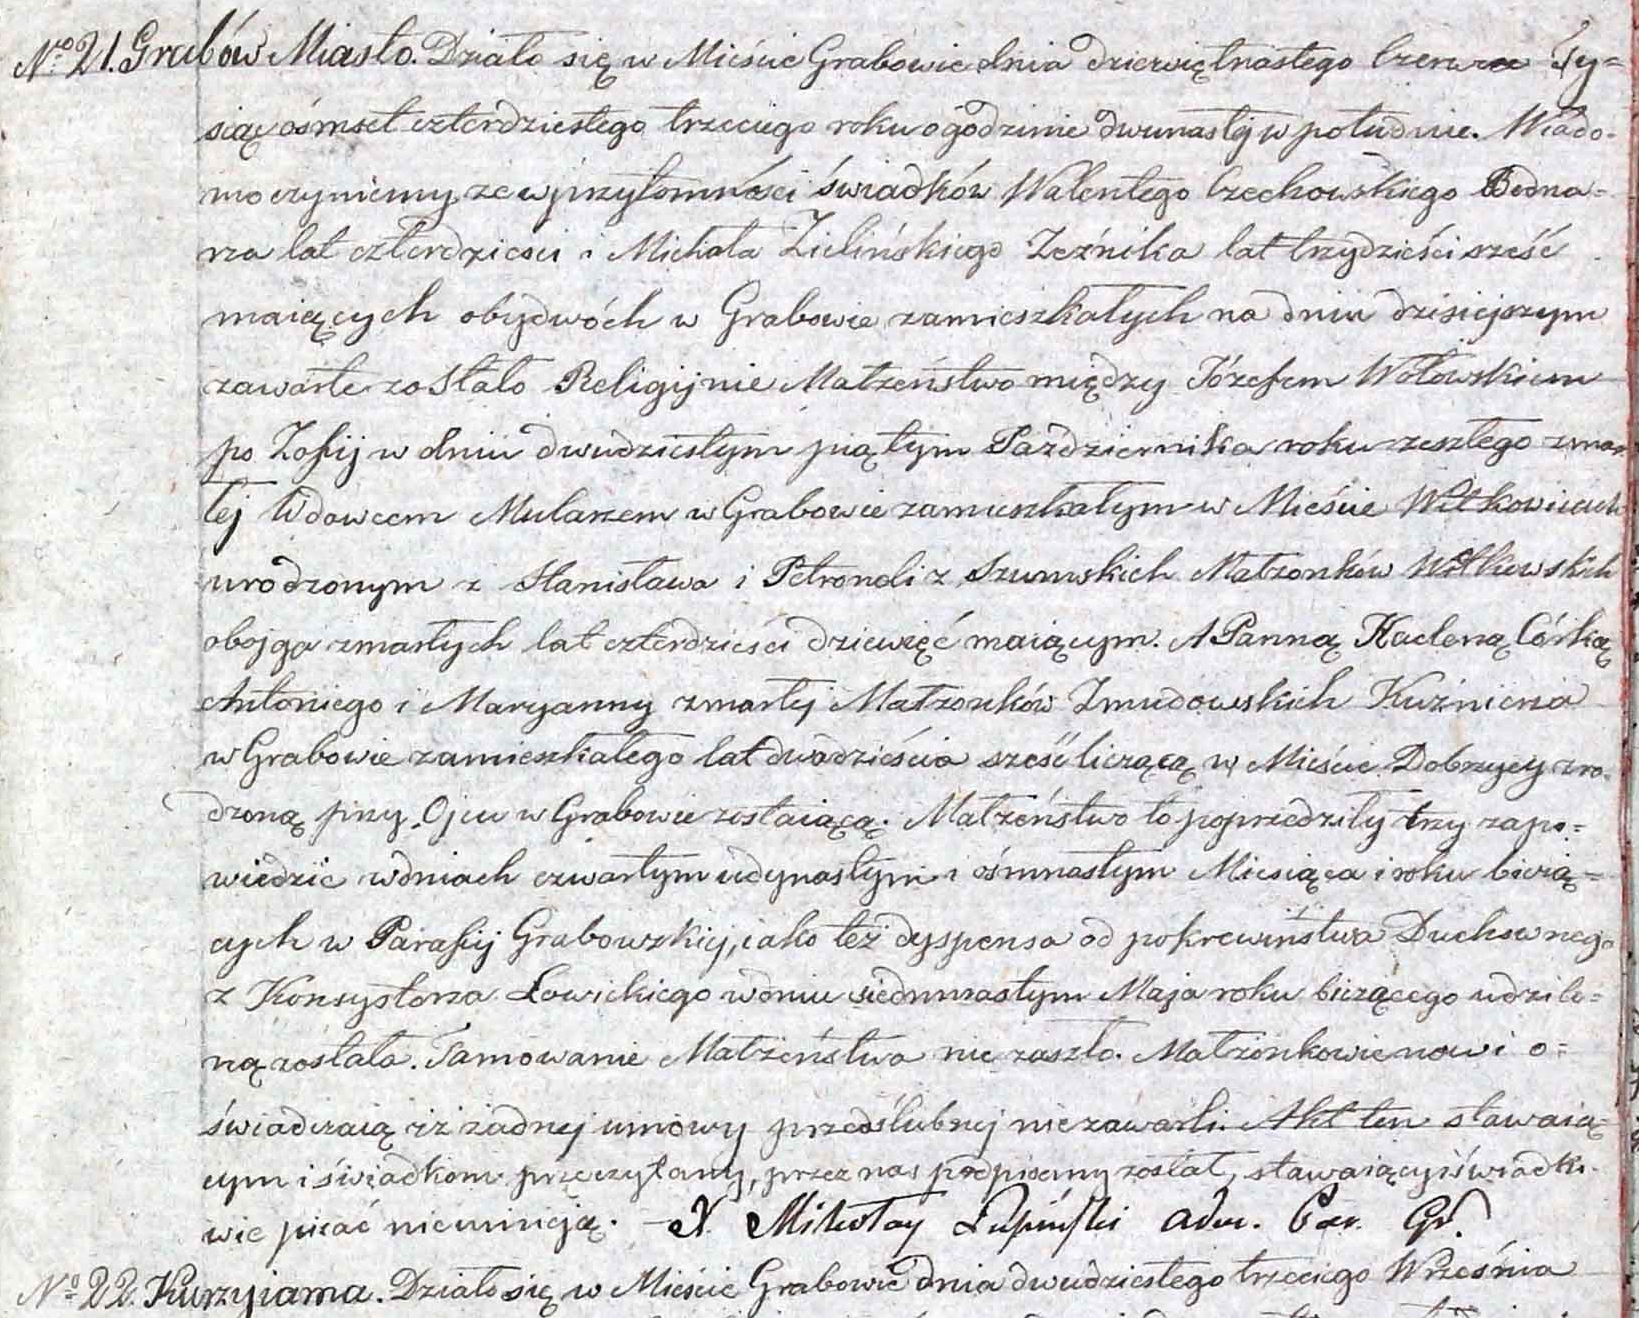 No 21. Grabów Miasto. Działo się w Mieście Grabowie dnia dziewiętnastego Czerwca Ty=
siąc ośmset czterdziestego trzeciego roku o godzinie dwunastej w południe. Wiado-
mo czyniemy że w przytomności świadków Walentego Czechowskiego Bedna=
rza lat czterdzieści i Michała Zielińskiego Rzeźnika lat trzydzieści sześć
maiących obydwóch w Grabowie zamieszkałych na dniu dzisiejszym
zawarte zostało Religijnie Małżeństwo między Józefem Wołowskiem
po Zofij w dniu dwudziestym piątym Pazdziernika roku zeszłego zmar
łej Wdowcem Mularzem w Grabowie zamieszkałym w Mieście Witkowicach
urodzonym z Stanisława i Petroneli z Szumskich Małżonków
obojga zmarłych lat czterdzieści dziewięć maiącym. A Panną Córką
Antoniego i Maryanny zmarłej Małżonków Zmudowskich Kuźnierza
w Grabowie zamieszkałego lat dwadzieścia sześć liczącą w Mieście Dobrzycy zro-
dzoną przy Ojcu w Grabowie zostaiącą. Małżeństwo to poprzedziły trzy zapo=
wiedzie w dniach czwartym iedynastym i ośmnastym Miesiąca i roku bieżą=
cych w Parafij Grabowskiej, iako też dyspensa od pokrewiństwa Duchownego
z Konsystorza Łowickiego w dniu siedmnastym Maja roku bieżącego udzielo=
ną została. Tamowanie Małżeństwa nie zaszło. Małżonkowie nowi o=
świadczaią iż żadnej umowy przedślubnej nie zawarli. Akt ten stawaią=
cym i świadkom przeczytany, przez nas podpisany został, stawaiący i świadko-
wie pisać nieumieją. — X. Mikołay Łupiński Adm. Par. Gr.
No 22. Kurzyjama. Działo się w Mieście Grabowie dnia dwudziestego trzeciego Września